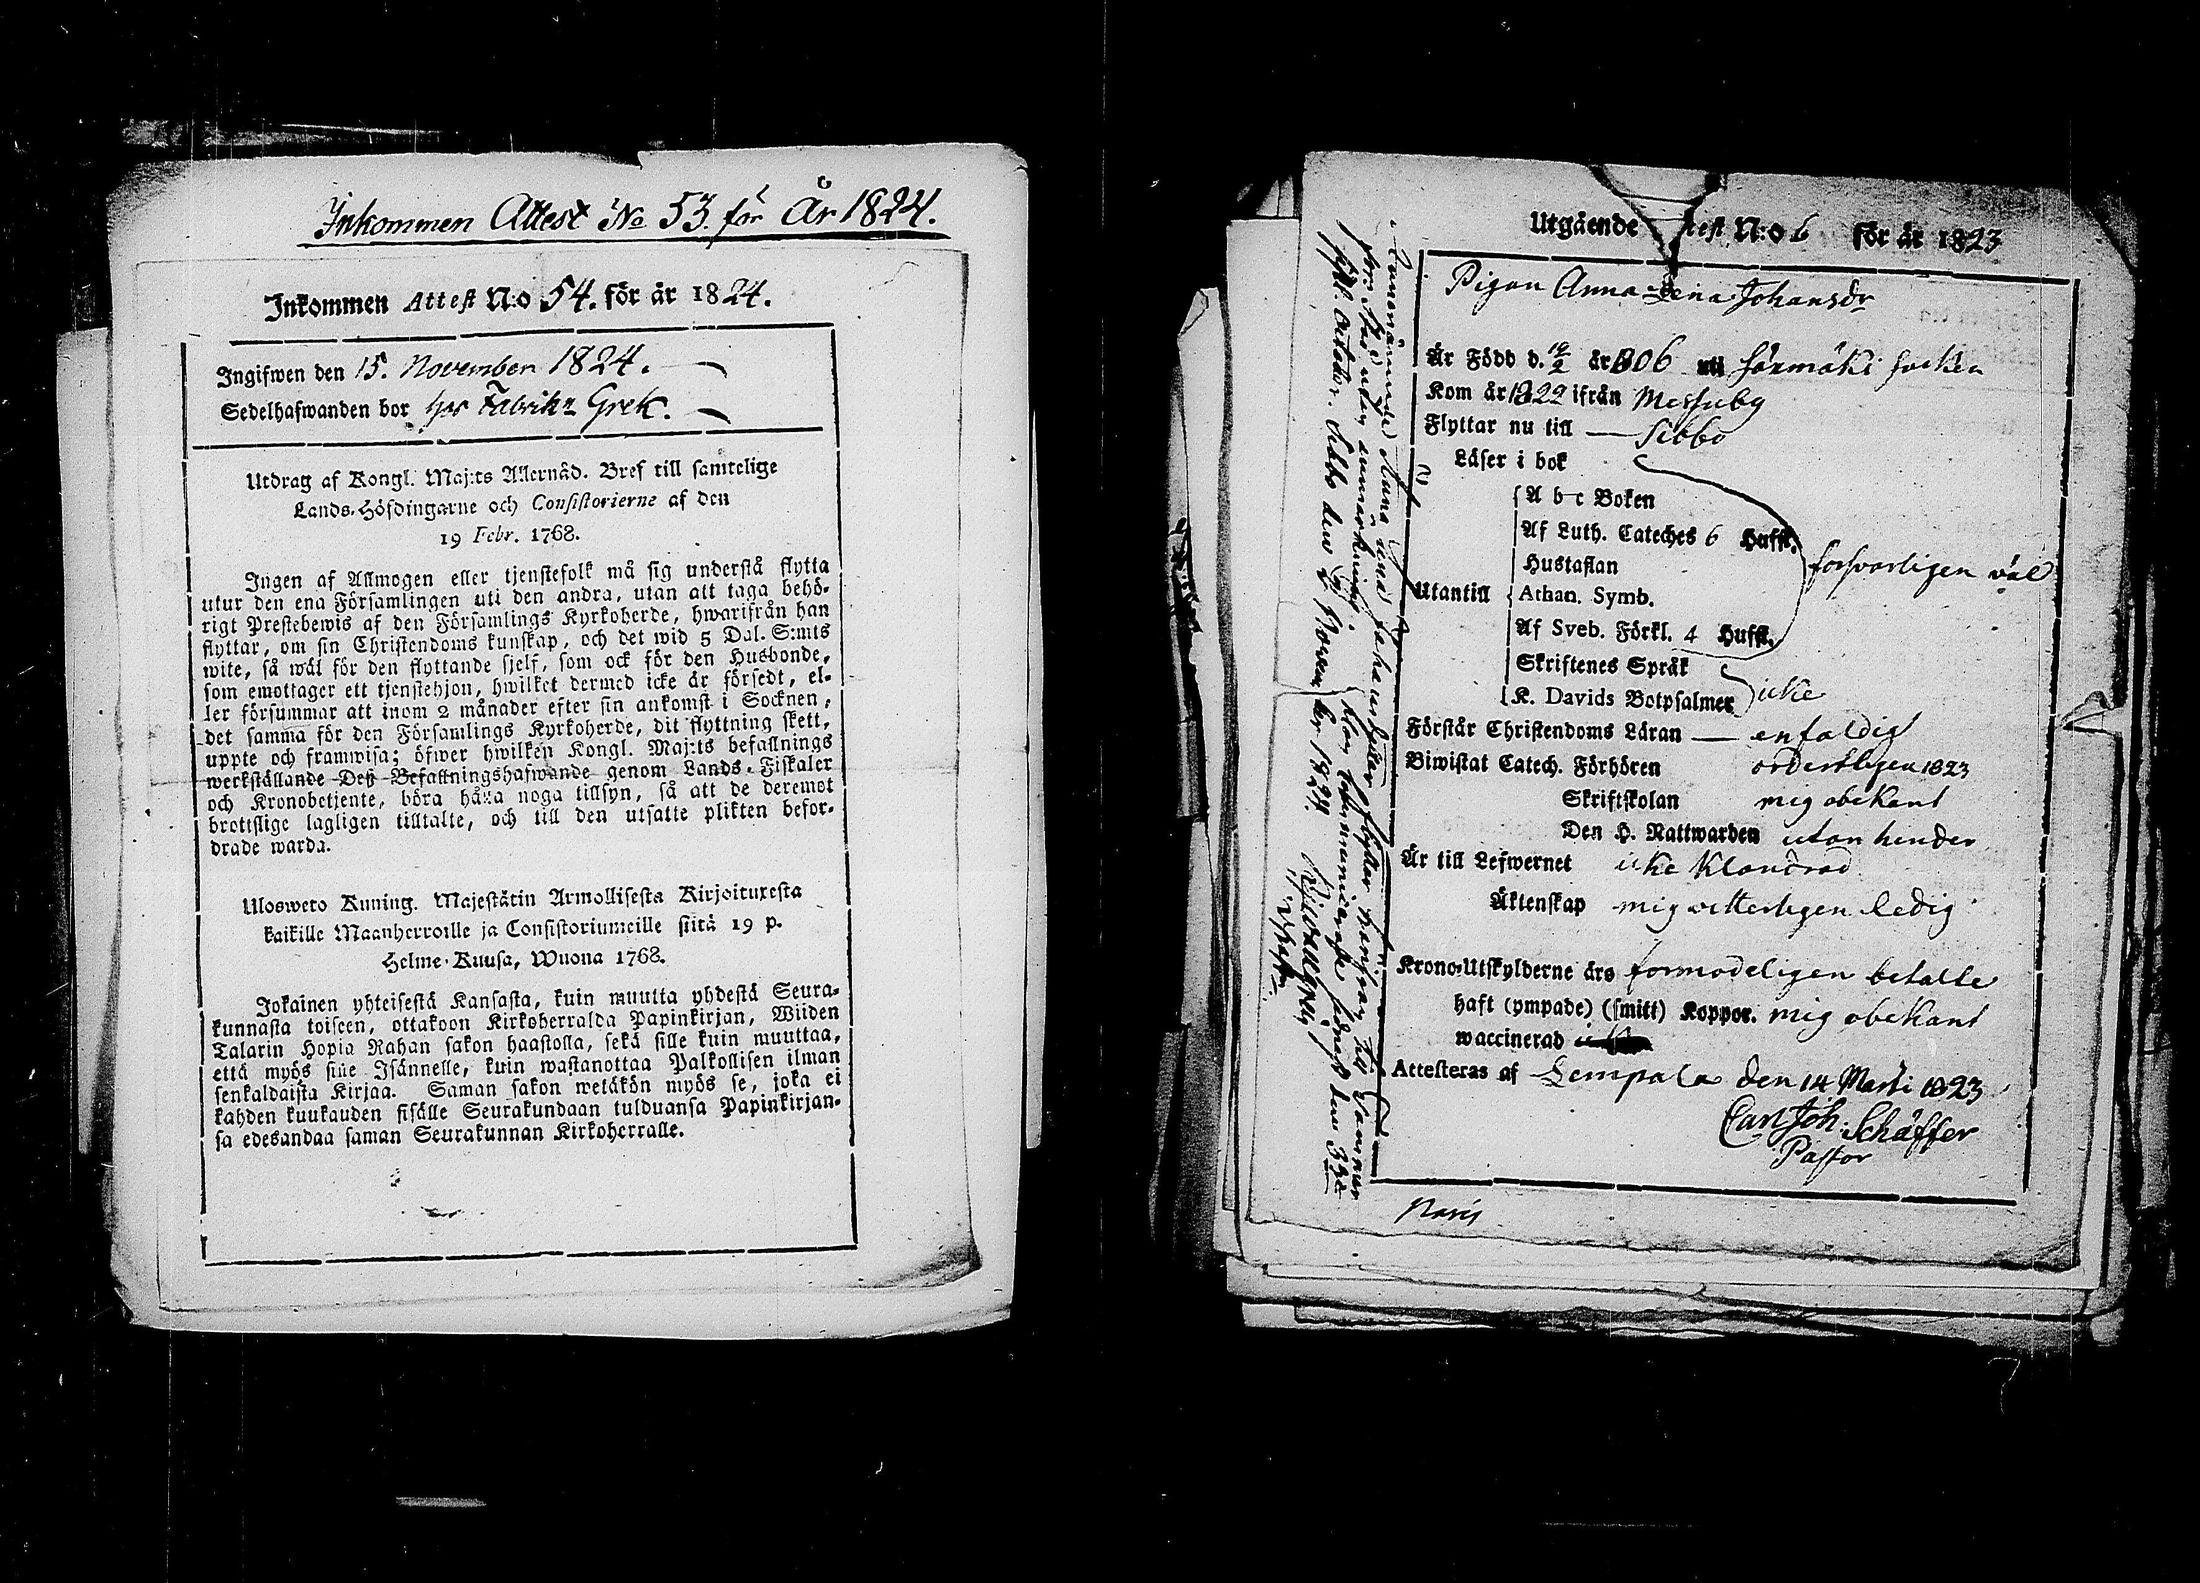 Inkommen Attest No 53. för År 1824.
Inkommen Attest N:o 54. för år 1824.
Ingifwen den 15. November 1824.
Sedelhafwanden bor hos Fabrikr Grek.
Utdrag af Kongl. Maj:ts Allernåd. Bref till samtelige
Lands-Höfdingarne och Consistorierne af den
19 Febr. 1768.
Ingen af Allmogen eller tjenstefolk må sig understå flytta
utur den ena Församlingen uti den andra, utan att taga behö-
rigt Prestebewis af den Församlings Kyrkoherde, hwarifrån han
flyttar, om sin Christendoms kunskap, och det wid 5 Dal. S:mts
wite, så wäl för den flyttande sjelf, som ock för den Husbonde,
som emottager ett tjenstehjon, hwilket dermed icke är försedt, el-
ler försummar att inom 2 månader efter sin ankomst i Socknen,
det samma för den Församlings Kyrkoherde, dit flyttning skett,
uppte och framwisa; öfwer hwilken Kongl. Maj:ts befallnings
werkställande Deß Befallningshafwande genom Lands-Fiskaler
och Kronobetjente, böra hålla noga tillsyn, så att de deremot
brottslige lagligen tilltalte, och till den utsatte plikten befor-
drade warda.
Ulosweto Kuning. Majestätin Armollisesta Kirjoituxesta
kaikille Maanherroille ja Consistoriumeille siitä 19 p.
Helme-Kuusa, Wuona 1768.
Jokainen yhteisestä Kansasta, kuin muutta yhdestä Seura-
kunnasta toiseen, ottakoon Kirkoherralda Papinkirjan, Wiiden
Talarin Hopia Rahan sakon haastolla, sekä sille kuin muuttaa,
että myös sille Isännelle, kuin wastanottaa Palkollisen ilman
senkaldaista Kirjaa. Saman sakon wetäkön myös se, joka ei
kahden kuukauden sisälle Seurakundaan tulduansa Papinkirjan-
sa edesandaa saman Seurakunnan Kirkoherralle.
Utgående test N:o 6 för år 1823
Pigan Anna Lena Johansdr
Är Född d. 19/2 år 1806 uti Säxmäki socken
Kom år 1822 ifrån Messuby
Flyttar nu till — Sibbo
Läser i bok
A b c Boken
Af Luth. Cateches 6 Hufst.
Hustaflan
försvarligen väl
Utantill Athan. Symb.
Af Sveb. Förkl. 4 Hufst.
Skriftenes Språk
K. Davids Botpsalmer icke
Förstår Christendoms Läran — enfaldigt
Biwistat Catech. Förhören ordentligen 1823
Skriftskolan mig obekant
Den H. Nattwarden utan hinder
Är till Lefwernet icke klandrad
Äktenskap mig vetterligen ledig
Krono-Utskylderne äro förmodeligen betalte
haft (ympade) (smitt) Koppor. mig obekant
waccinerad
Attesteras af Lempala den 14 Martii 1823
Carl Joh. Schäffer
Pastor
Sibbo den November 1824.